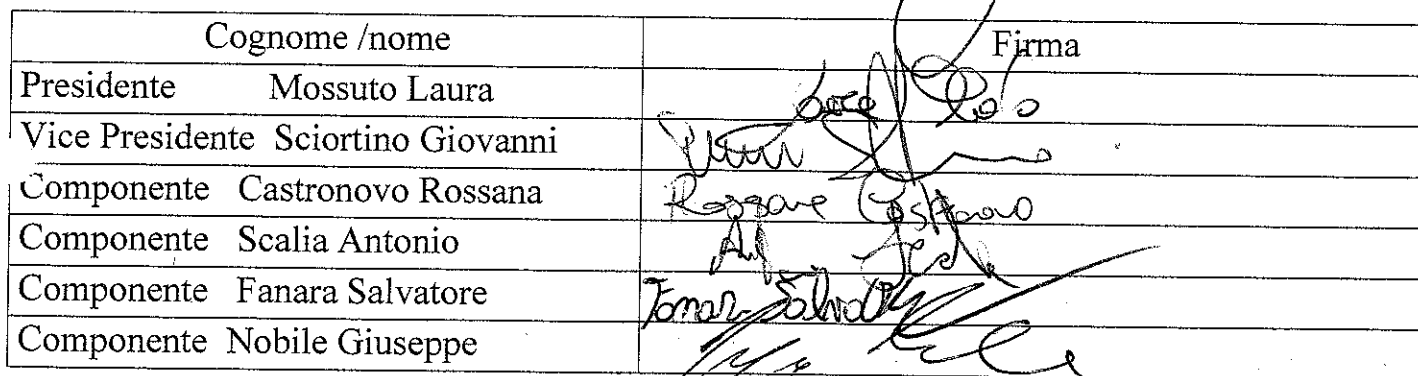 Cognome /nome Firma
Presidente Mossuto Laura
Vice Presidente Sciortino Giovanni
Componente Castronovo Rossana Rossana Castronovo
Componente Scalia Antonio
Componente Fanara Salvatore Fanara Salvatore
Componente Nobile Giuseppe